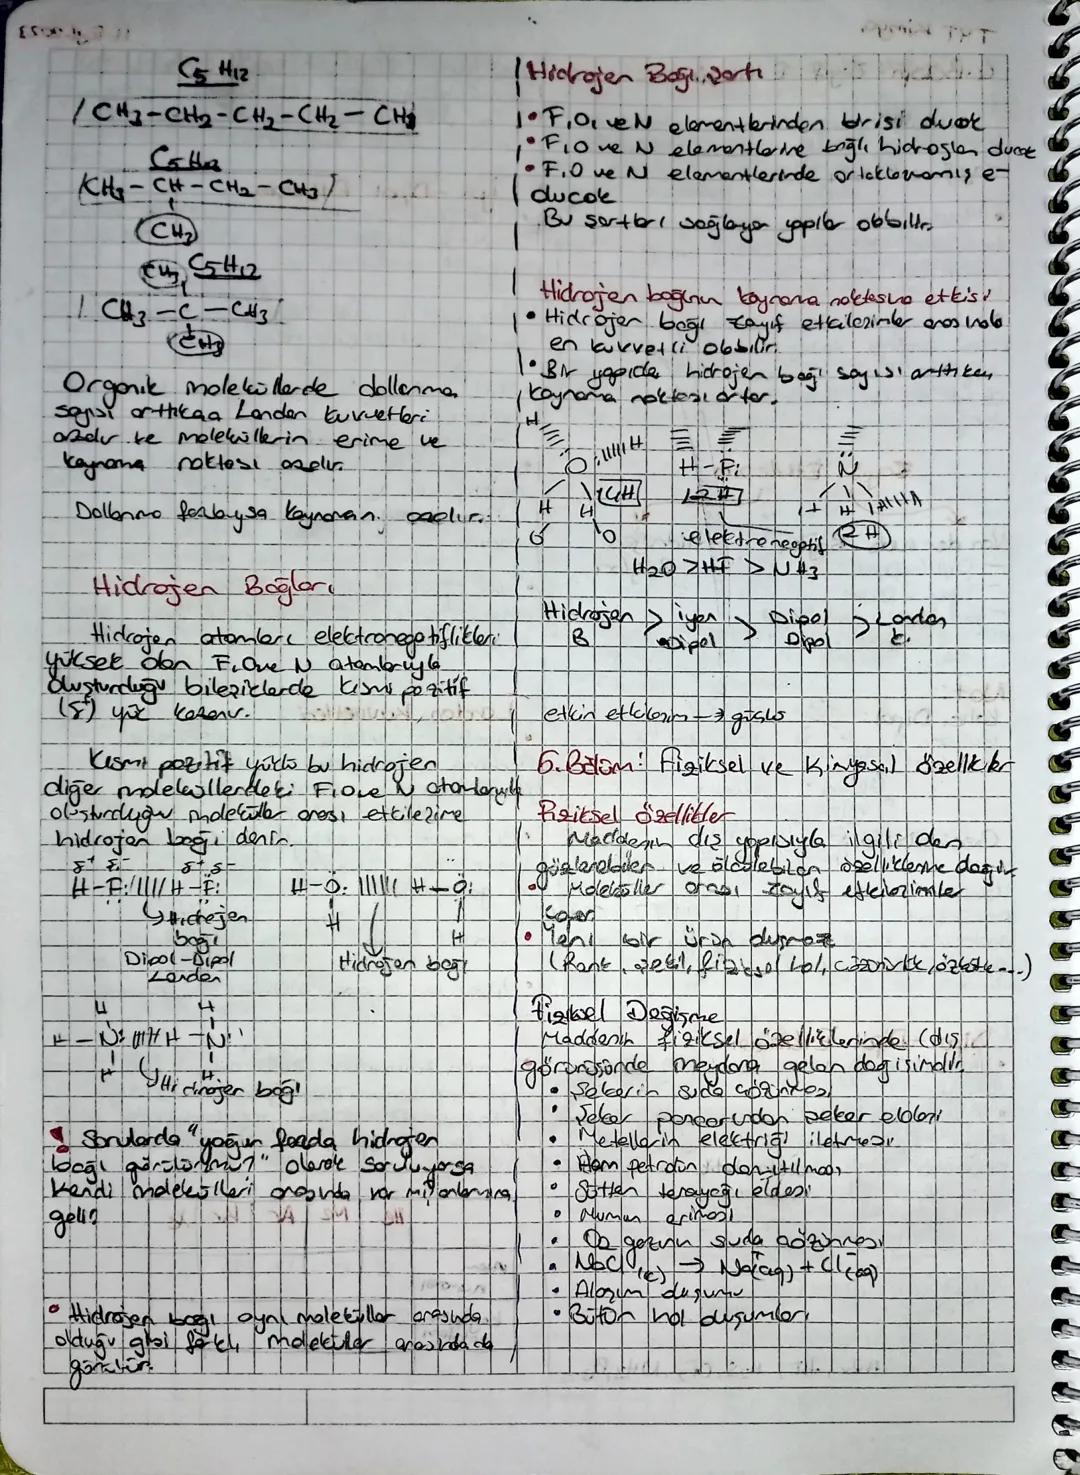 C5 H12
CH3-CH2-CH2-CH2-CH3
C5H12
CH3-CH-CH2-CH3
CH3
CH3 C5H12
CH3-C-CH3
CH3
Organik moleküllerde dallanma
sayısı arttıkça London kuvvetleri
azalır ve moleküllerin erime ve
kaynama noktası azalır.
Dallanma fazlaysa kaynaman azalır.
Hidrojen Bağları
Hidrojen atomları elektronegatiflikleri
yüksek olan F, O ve N atomlarıyla
oluşturduğu bileşiklerde kısmi pozitif
(δ+) yük kazanır.
Kısmi pozitif yüklü bu hidrojen
diğer moleküllerdeki F, O ve N atomlarıyla
oluşturduğu moleküller arası etkileşime
hidrojen bağı denir.
δ+ δ- δ+ δ-
H-F: H-F: H-Ö: H-Ö:
Hidrojen H H
bağı
Dipol-Dipol Hidrojen bağı
London
H H
H-N: H-N:
H H
Hidrojen bağı
! Sorularda "yoğun fazda hidrojen
bağı görülür mü?" olarak soruluyorsa
kendi molekülleri arasında var mı anlamına
gelir
• Hidrojen bağı aynı moleküller arasında
olduğu gibi farklı moleküller arasında da
görülür.
Hidrojen Bağı şartı
• F, O, ve N elementlerinden birisi olucak
• F, O ve N elementlerine bağlı hidrojen olucak
• F, O ve N elementlerinde ortaklanmamış e-
olucak
Bu şartları sağlayan yapılar olabilir.
Hidrojen bağının kaynama noktasına etkisi
• Hidrojen bağı zayıf etkileşimler arasında
en kuvvetli olabilir.
• Bir yapıda hidrojen bağı sayısı arttıkça
kaynama noktası artar.
H
O H H-F: N
4H 2H
H H H H
O O elektronegatif 2H
H2O > HF > NH3
Hidrojen > iyon > Dipol > London
B Dipol Dipol k.
etkin etkileşim → güçlü
6. Bölüm: Fiziksel ve Kimyasal özellikler
Fiziksel özellikler
• Maddenin dış yapısıyla ilgili olan
gözlenebilen ve ölçülebilen özelliklerine değinir
• Moleküller arası zayıf etkileşimler
kopar
• Yeni bir ürün oluşmaz
(Renk, şekil, fiziksel hal, çözünürlük, özkütle...)
Fiziksel Değişme
Maddenin fiziksel özelliklerinde (dış
görünüşünde meydana gelen değişimdir.
• Şekerin suda çözünmesi
• Şeker pancarından şeker eldesi
• Metallerin elektriği iletmesi
• Ham petrolün damıtılması
• Sütten tereyağı eldesi
• Mumun erimesi
• O2 gazının suda çözünmesi
• NaCl(k) → Na+(aq) + Cl-(aq)
• Alaşım oluşumu
• Bütün hal oluşumları